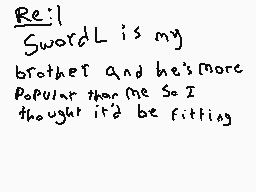 Re:l
SwordL is my
brother and he's more
Popular than me So I
thought it'd be fitting